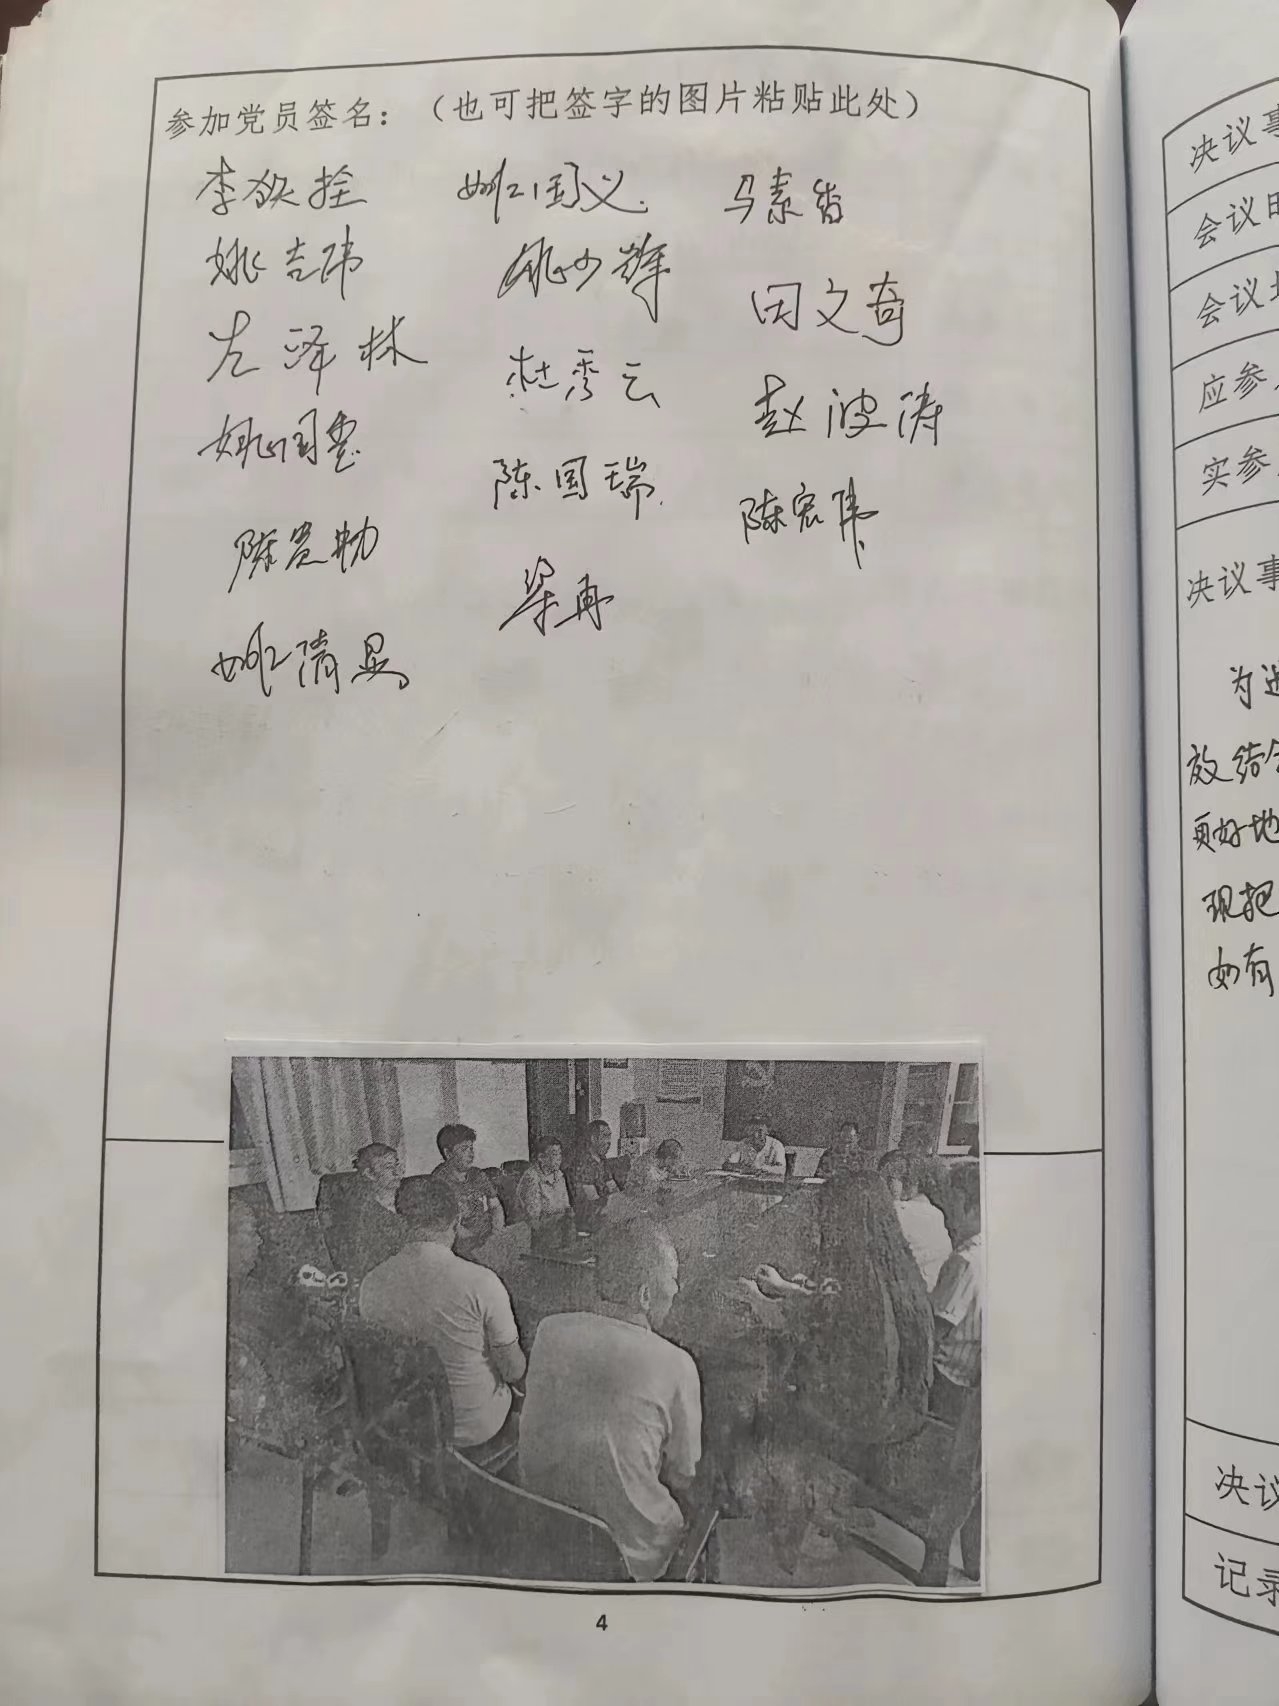 参加党员签名：（也可把签字的图片粘贴此处）
李铁拴 姚国义 马素香
姚吉伟 姚少辉 田文奇
左泽林 杜秀云 赵波涛
姚国 陈国瑞 陈宏伟
陈贵 梁再
姚清显
4
决议事
会议时
会议地
应参
实参
决议事
为进
放结合
更好地
现把
如有
决议
记录